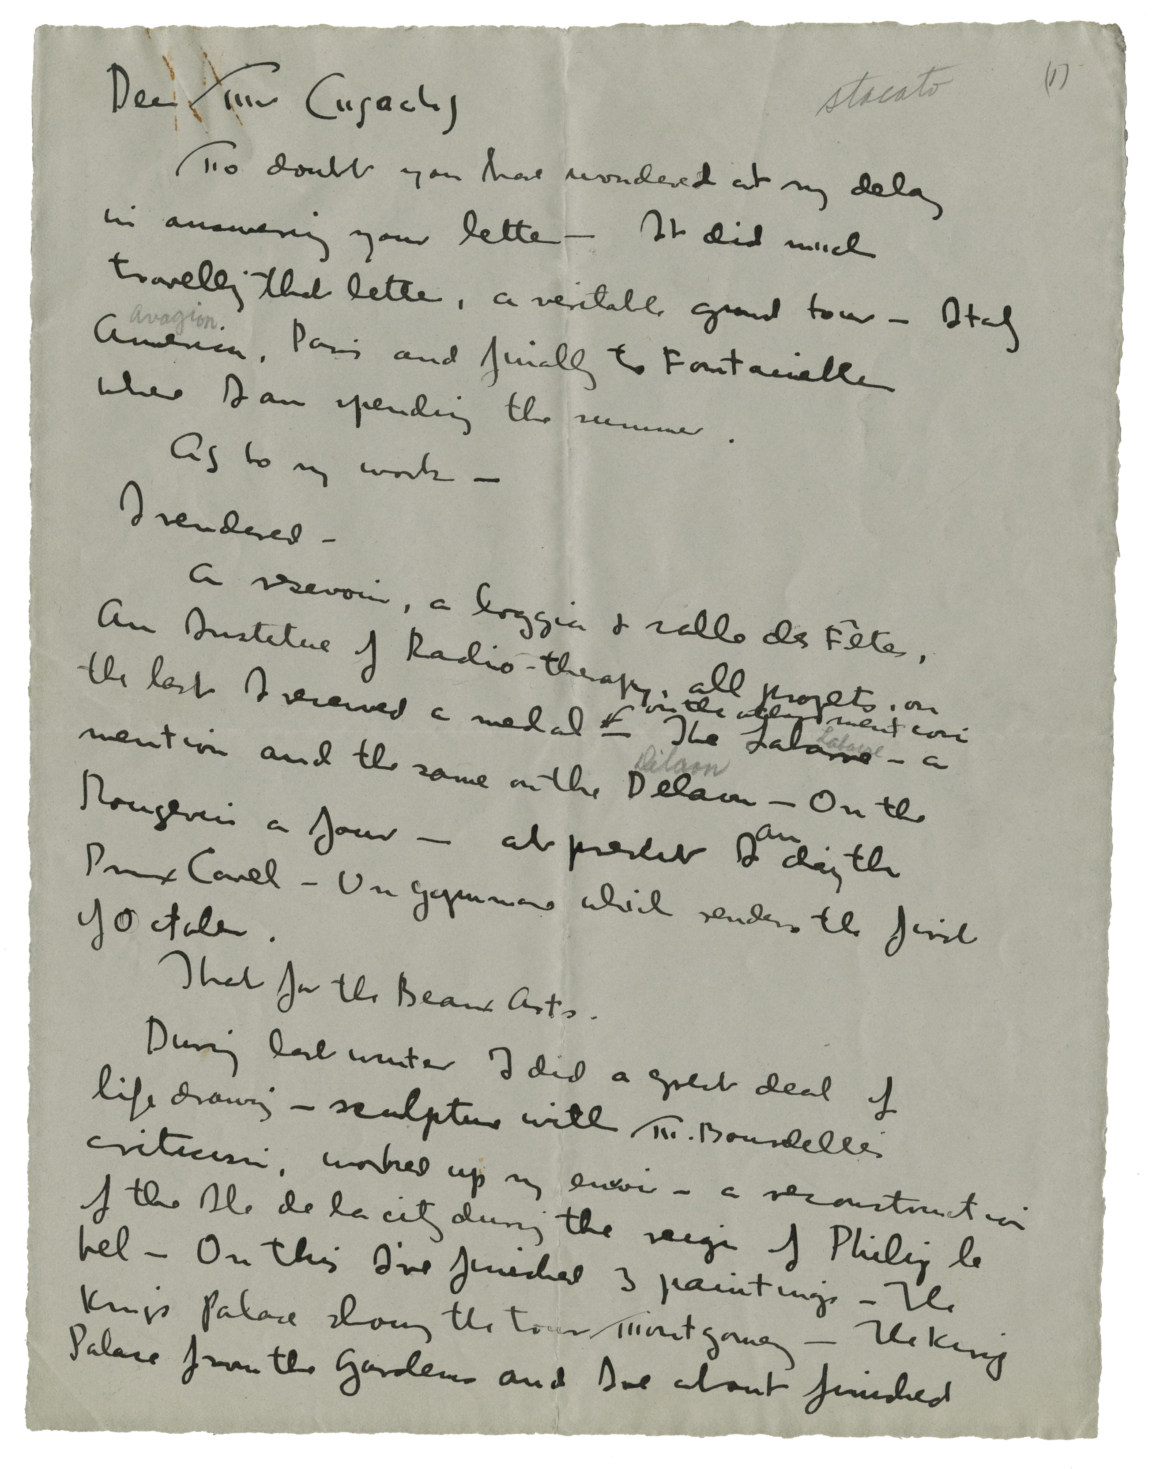 stacato (1)
Dear Mr Cugachy
No doubt you have wondered at my delay
in answering your letter — It did much
travelling that letter, a veritable grand tour — Italy
America, Paris and finally to Fontainebleau
where I am spending the summer.
As to my work —
I rendered —
a resevoir, a loggia & salle des Fêtes,
An Institue of Radio-therapy, all projets, on
the last I received a medal — on the other mention
The Labarre — a
mention and the same on the Delaon — On the
Rougevin a four — at present I am doing the
Prix Cavel — Un gymnase which renders the first
of October.
That for the Beaux Arts.
During last winter I did a great deal of
life drawing — sculpture with M. Bourdelle's
criticism, worked up my envoi — a reconstruction
of the Ile de la city during the reign of Philip le
bel — On this I've finished 3 paintings — The
King's Palace showing the tour Montgomery — The King
Palace from the Gardens and I've about finished